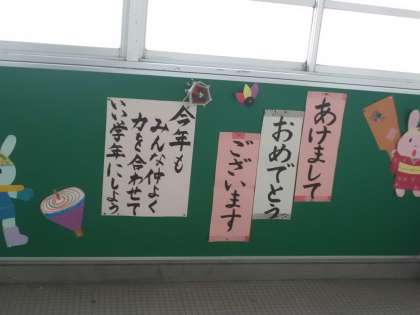 あけまして
おめでとう
ございます
今年も
みんな仲よく
力を合わせて
いい学年にしよう